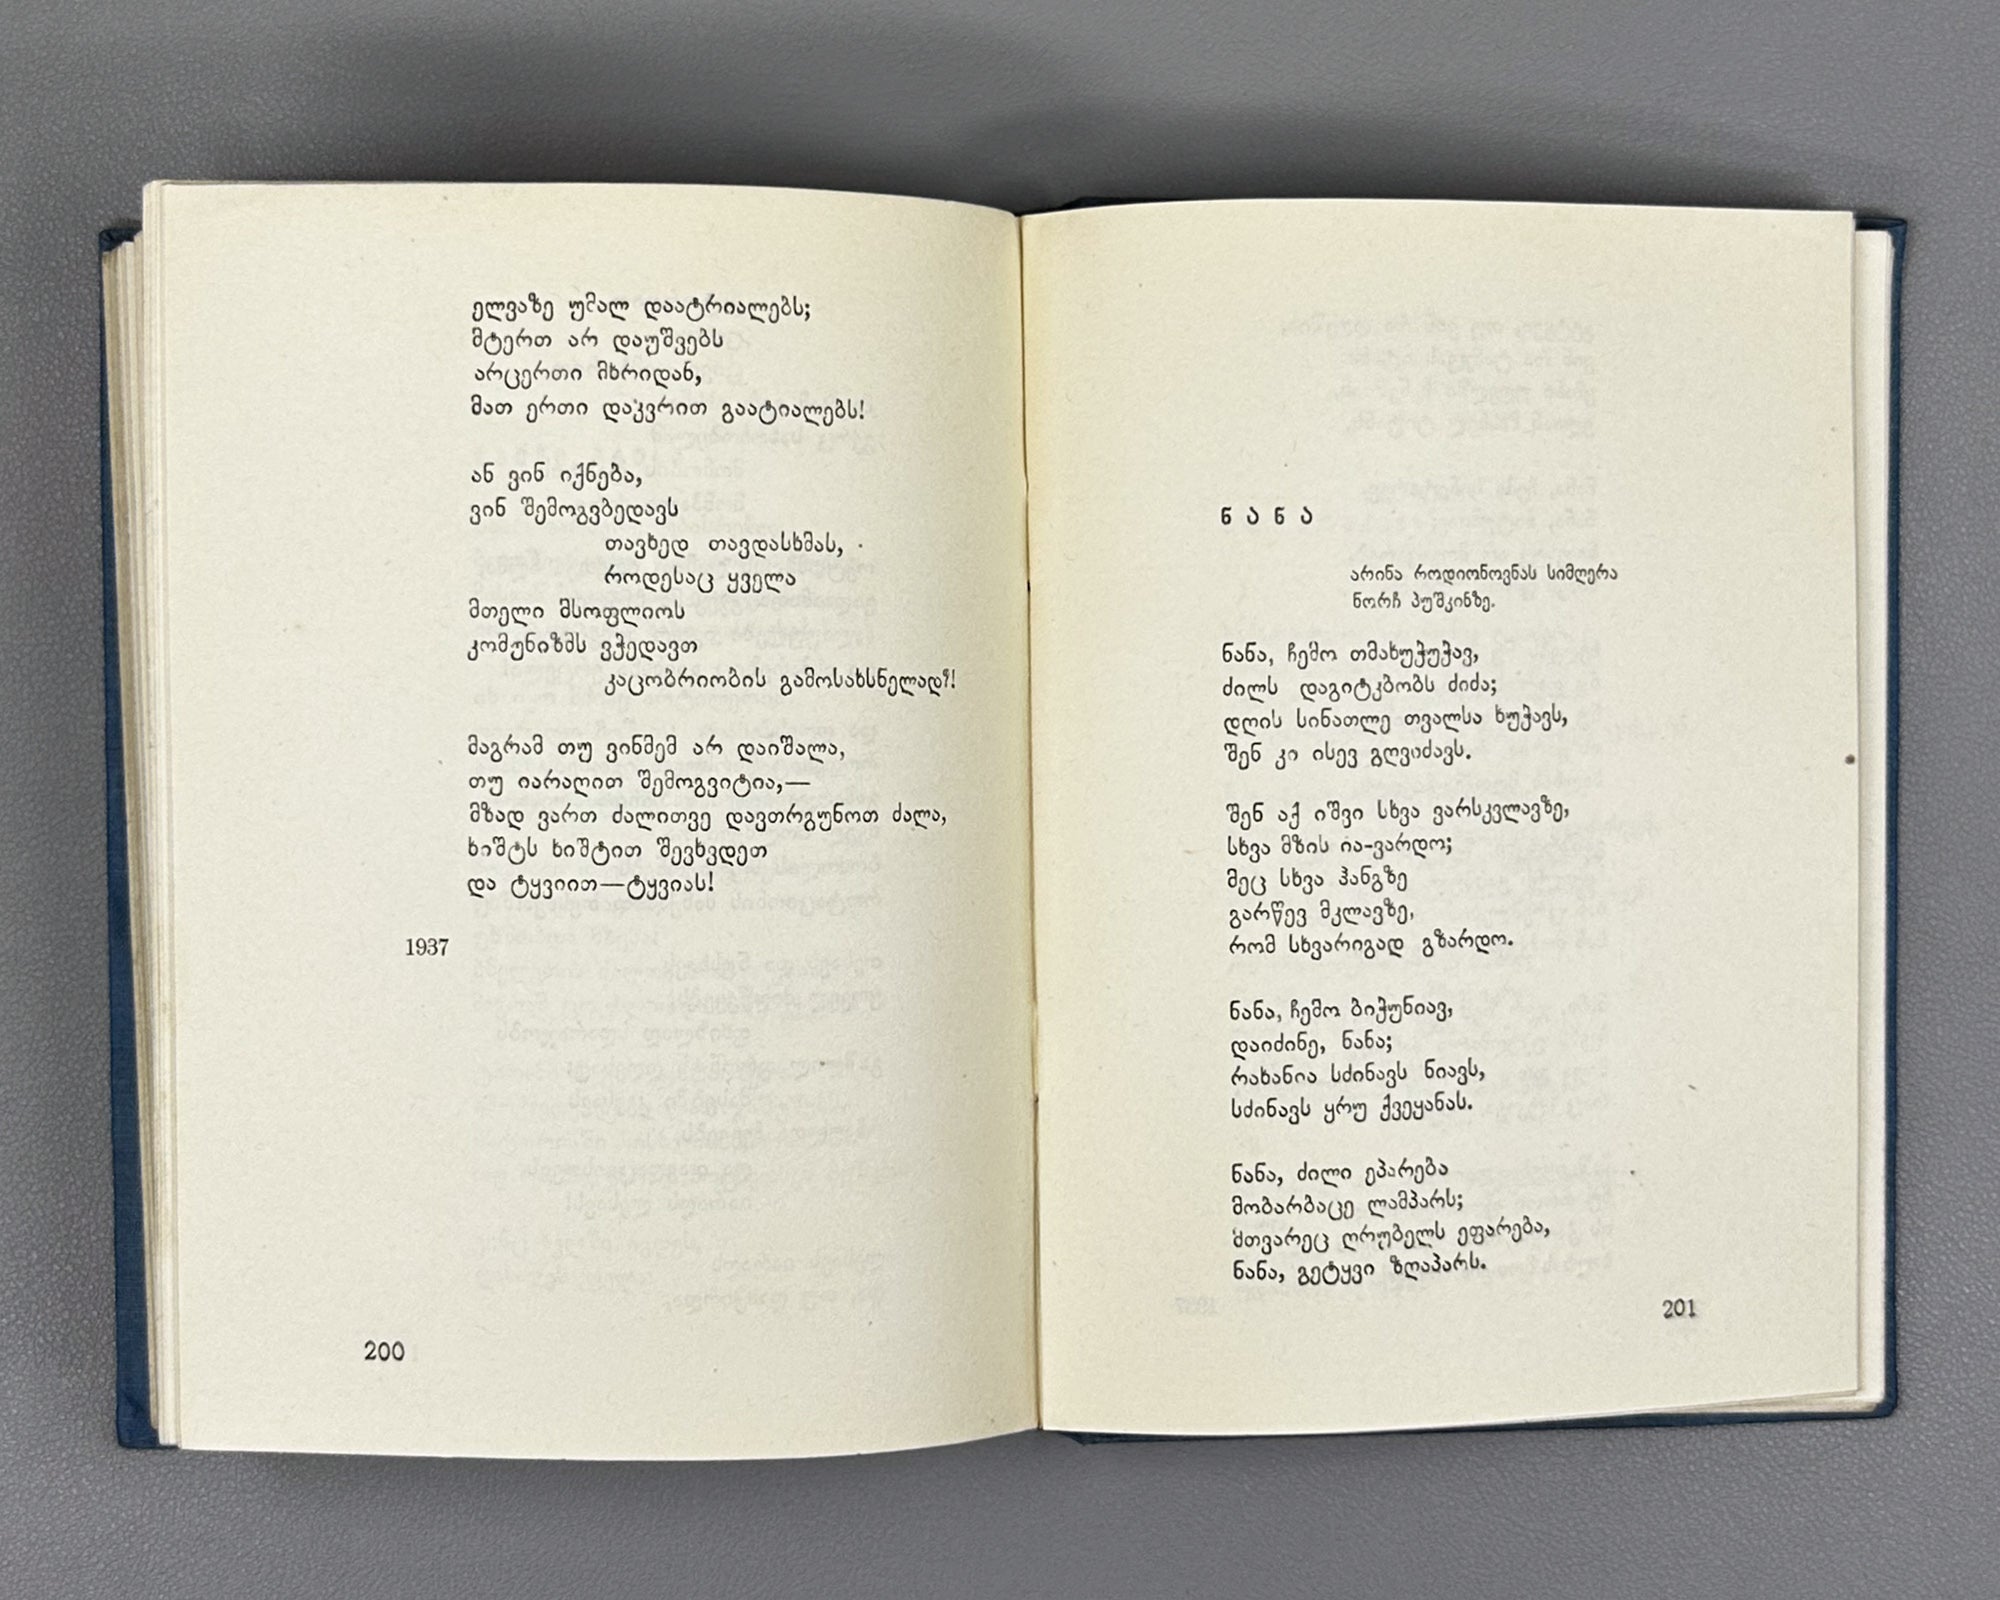 ელვაზე უმალ დაატრიალებს;
მტერთ არ დაუშვებს
არცერთი მხრიდან,
მათ ერთი დაკვრით გაატიალებს!
ან ვინ იქნება,
ვინ შემოგვბედავს
თავხედ თავდასხმას,
როდესაც ყველა
მთელი მსოფლიოს
კომუნიზმს ვჭედავთ
კაცობრიობის გამოსახსნელად?!
მაგრამ თუ ვინმემ არ დაიშალა,
თუ იარაღით შემოგვიტია,—
მზად ვართ ძალითვე დავთრგუნოთ ძალა,
ხიშტს ხიშტით შევხვდეთ
და ტყვიით—ტყვიას!
1937
200
ნ ა ნ ა
არინა როდიონოვნას სიმღერა
ნორჩ პუშკინზე.
ნანა, ჩემო თმახუჭუჭავ,
ძილს დაგიტკბობს ძიძა;
დღის სინათლე თვალსა ხუჭავს,
შენ კი ისევ გღვიძავს.
შენ აქ იშვი სხვა ვარსკვლავზე,
სხვა მზის ია-ვარდო;
მეც სხვა ჰანგზე
გარწევ მკლავზე,
რომ სხვარიგად გზარდო.
ნანა, ჩემო ბიჭუნიავ,
დაიძინე, ნანა;
რახანია სძინავს ნიავს,
სძინავს ყრუ ქვეყანას.
ნანა, ძილი ეპარება
მობარბაცე ლამპარს;
მთვარეც ღრუბელს ეფარება,
ნანა, გეტყვი ზღაპარს.
201